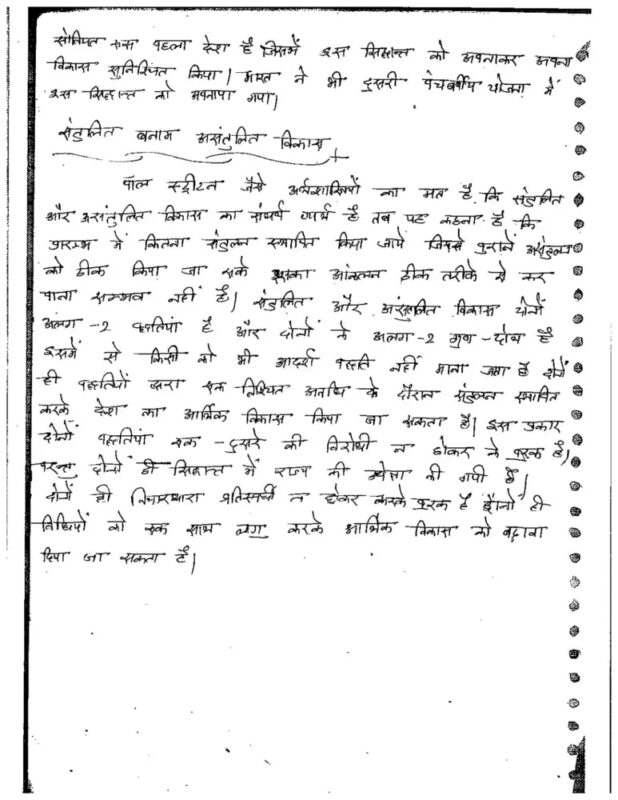 सोवियत रूस पहला देश है जिसमें इस सिद्धान्त को अपनाकर अपना
विकास सुनिश्चित किया। भारत ने भी दुसरी पंचवर्षीय योजना में
इस सिद्धान्त को अपनाया गया।
संतुलित बनाम असंतुलित विकास
पॉल स्ट्रीटन जैसे अर्थशास्त्रियों का मत है कि संतुलित
और असंतुलित विकास का संघर्ष व्यर्थ है तब यह कहना है कि
प्रारम्भ में कितना संतुलन स्थापित किया जाये जिससे पुराने असंतुलन
को ठीक किया जा सके इसका आंकलन ठीक तरीके से कर
पाना सम्भव नहीं है। संतुलित और असंतुलित विकास दोनों
अलग-2 पद्धतियां है और दोनों के अलग-2 गुण-दोष है
इसमें से किसी को भी आदर्श पद्धति नहीं माना जाता है दोनों
ही पद्धतियों द्वारा एक निश्चित अवधि के दौरान संतुलन स्थापित
करके देश का आर्थिक विकास किया जा सकता है। इस प्रकार
दोनों पद्धतियां एक-दुसरे की विरोधी न होकर के पुरक है।
परन्तु दोनों ही सिद्धान्त में राज्य की उपेक्षा की गयी है।
दोनों ही विचारधारा प्रतिस्पर्धी न होकर करके पुरक है दोनों ही
विधियों को एक साथ लागु करके आर्थिक विकास को बढ़ावा
दिया जा सकता है।